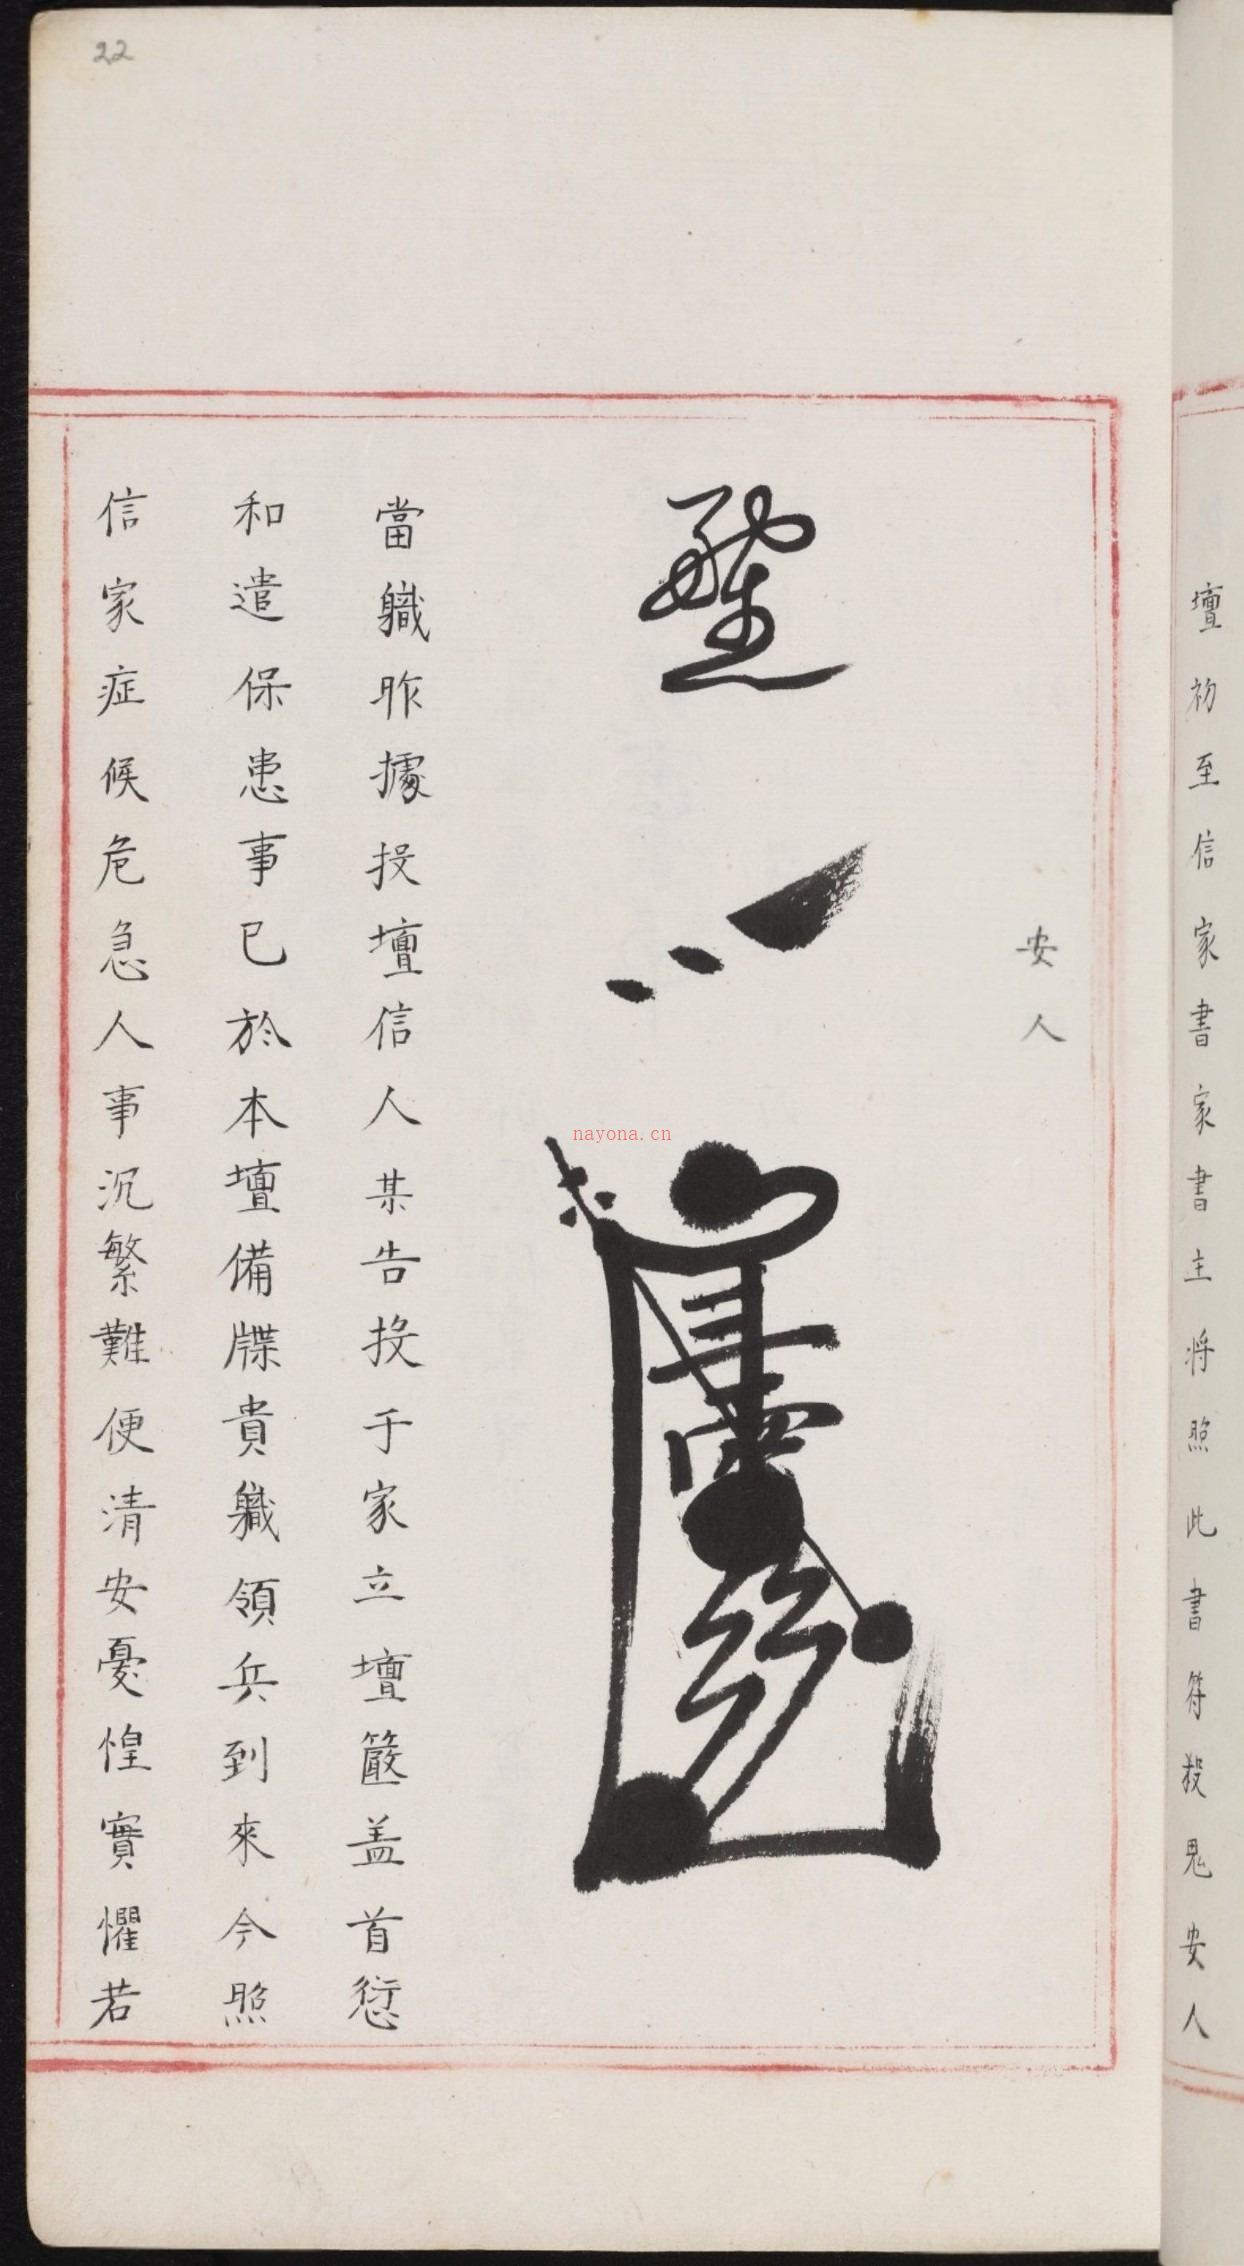 壇初至信家書家書主將照此書符殺鬼安人
安人
當軄昨據投壇信人某告投于家立壇簽盖首愆
和遣保患事已於本壇備牒貴軄領兵到來今照
信家症候危急人事沉繁難便清安憂惶實懼若
22
nayona.cn